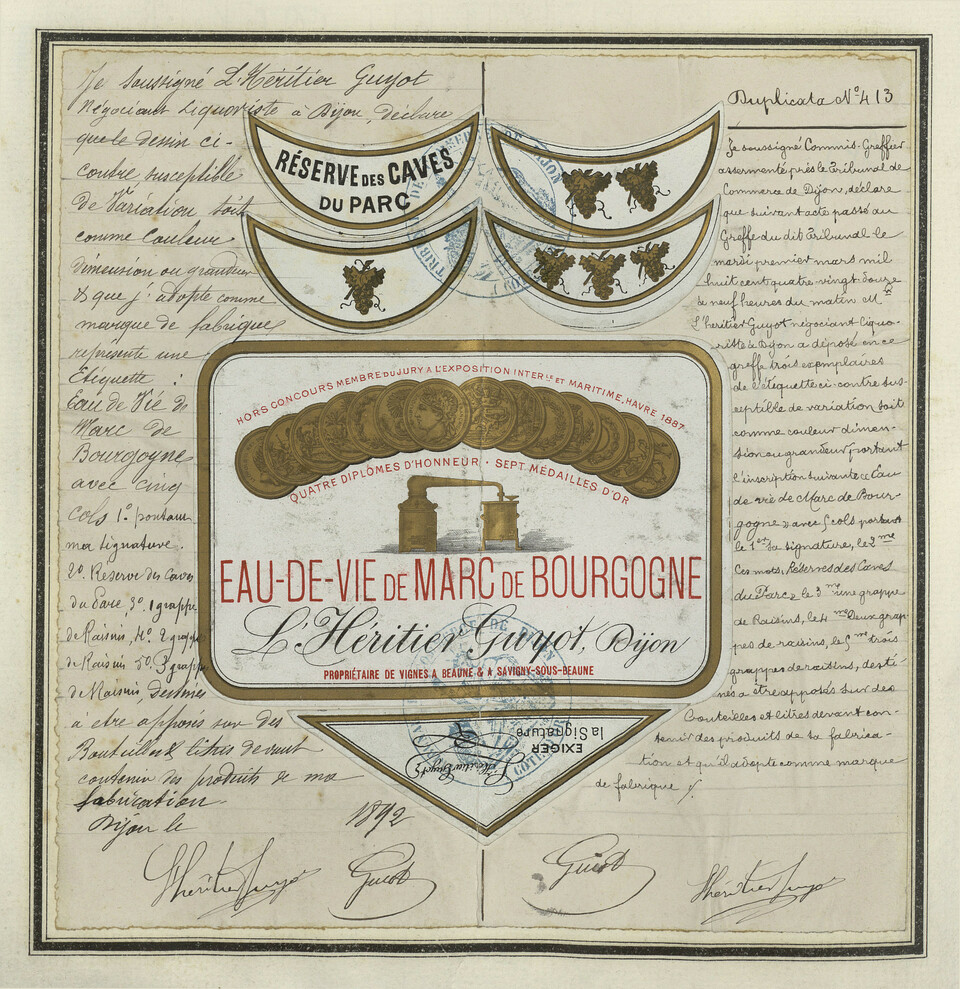 Je soussigné L'Héritier Guyot
Négociant Liquoriste à Dijon, déclare
que le dessin ci-
contre susceptible
de Variation soit
comme Couleur
dimension ou grandeur
& que j'adopte comme
marque de fabrique
représente une
Etiquette :
Eau de Vie de
Marc de
Bourgogne
avec cinq
cols 1º portant
ma signature.
2º Réserve des Caves
du Parc 3º 1 grappe
de Raisins, 4º 2 grappes
de Raisins 5º 3 grappes
de Raisins, destinés
à être apposés sur des
Bouteilles & litres devant
contenir des produits de ma
fabrication.
Dijon le 1892
L'héritier Guyot
Guiot
RÉSERVE DES CAVES
DU PARC
HORS CONCOURS MEMBRE DU JURY A L'EXPOSITION INTERLE ET MARITIME, HAVRE 1887
QUATRE DIPLÔMES D'HONNEUR · SEPT MÉDAILLES D'OR
EAU-DE-VIE DE MARC DE BOURGOGNE
L'Héritier Guyot, Dijon
PROPRIÉTAIRE DE VIGNES A BEAUNE & A SAVIGNY-SOUS-BEAUNE
EXIGER
la Signature
L'Héritier Guyot
Duplicata Nº 413
Je soussigné Commis-Greffier
assermenté près le Tribunal de
Commerce de Dijon, déclare
que suivant acte passé au
Greffe du dit Tribunal le
mardi premier mars mil
huit cent quatre-vingt-douze
à neuf heures du matin Mr.
L'héritier Guyot négociant-liquo-
riste à Dijon a déposé en ce
greffe trois exemplaires
de l'étiquette ci-contre sus-
ceptible de variation soit
comme couleur dimen-
sion ou grandeur, portant
l'inscription suivante « Eau
de vie de Marc de Bour-
gogne » avec 5 cols portant
le 1er sa signature, le 2me
Ces mots, Réserves des Caves
du Parc, le 3me une grappe
de Raisins, le 4me Deux grap-
pes de raisins, le 5me trois
grappes de raisins, desti-
nés a être apposés sur des
bouteilles et litres devant con-
tenir des produits de sa fabrica-
tion et qu'il adopte comme marque
de fabrique
Guiot
L'héritier Guyot